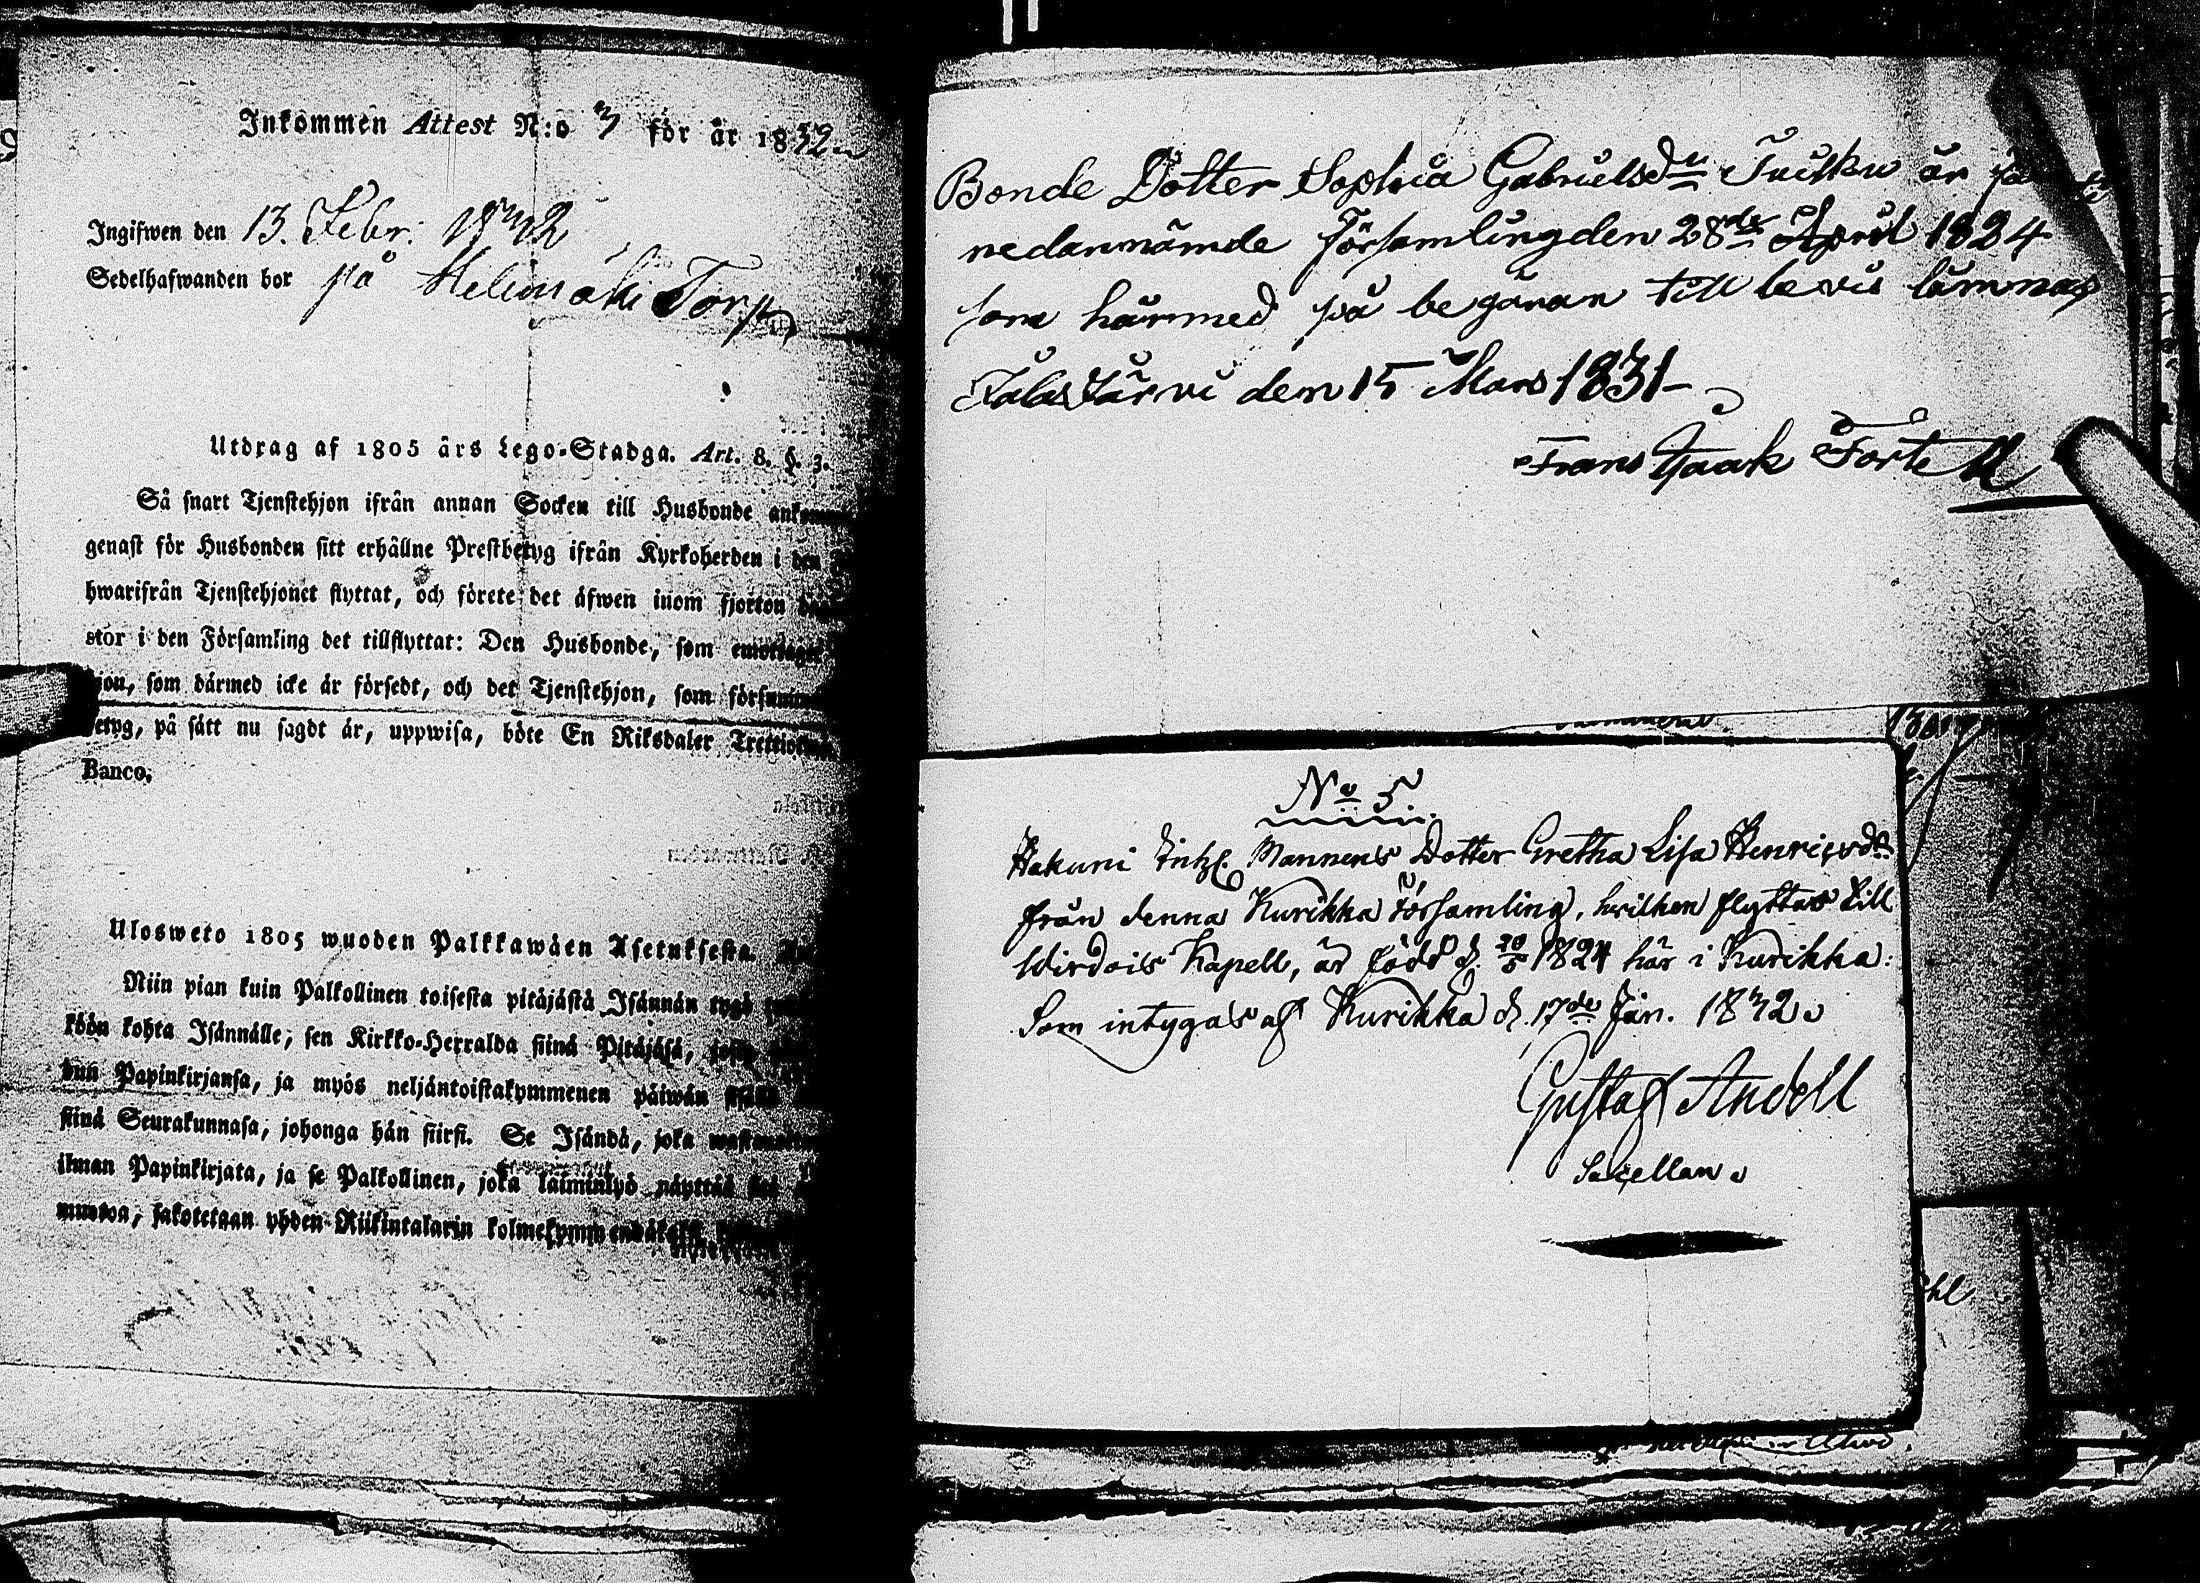 Inkommen Attest N:o 3 för år 1832
Ingifwen den 13. Febr. 1832
Sedelhafwanden bor på Torp
Utdrag af 1805 års Lego-Stadga. Art. 8. §. 3.
Så snart Tjenstehjon ifrån annan Socken till Husbonde
genast för Husbonden sitt erhållne Prestbetyg ifrån Kyrkoherden i den
hwarifrån Tjenstehjonet flyttat, och förete det äfwen inom fjorton
stor i den Församling det tillflyttat: Den Husbonde, som
hjon, som därmed icke är försedt, och det Tjenstehjon, som
betyg, på sätt nu sagdt är, uppwisa, böte En Riksdaler
Banco.
Ulosweto 1805 wuoden Palkkawäen Asetuksesta.
Niin pian kuin Palkollinen toisesta pitäjästä Isännän tygö
köön kohta Isännälle, sen Kirkko-Herralda siinä Pitäjäsä,
hun Papinkirjansa, ja myös neljäntoistakymmenen päiwän
siinä Seurakunnasa, johonga hän siirsi. Se Isändä, joka
ilman Papinkirjata, ja se Palkollinen, joka laiminlyö näyttää
muotoa, sakotetaan yhden Riikintalarin
Bonde Dotter Sophia Gabrielsdr är
nedannämde Församling den 28de April 1824
som härmed på begäran till bevis lämnas
Jalasjärvi den 15 Mars 1831
Frans Isaak Fortell
No 5
Inhs. Mannens Dotter Gretha Lisa Henricsdr
från denna Kurikka Församling, hvilken flyttar till
Wirdois Kapell, är född d. 1824 här i Kurikka:
Som intygas af Kurikka d. 17de Jan. 1832.
Gustaf Andell
Sacellan.